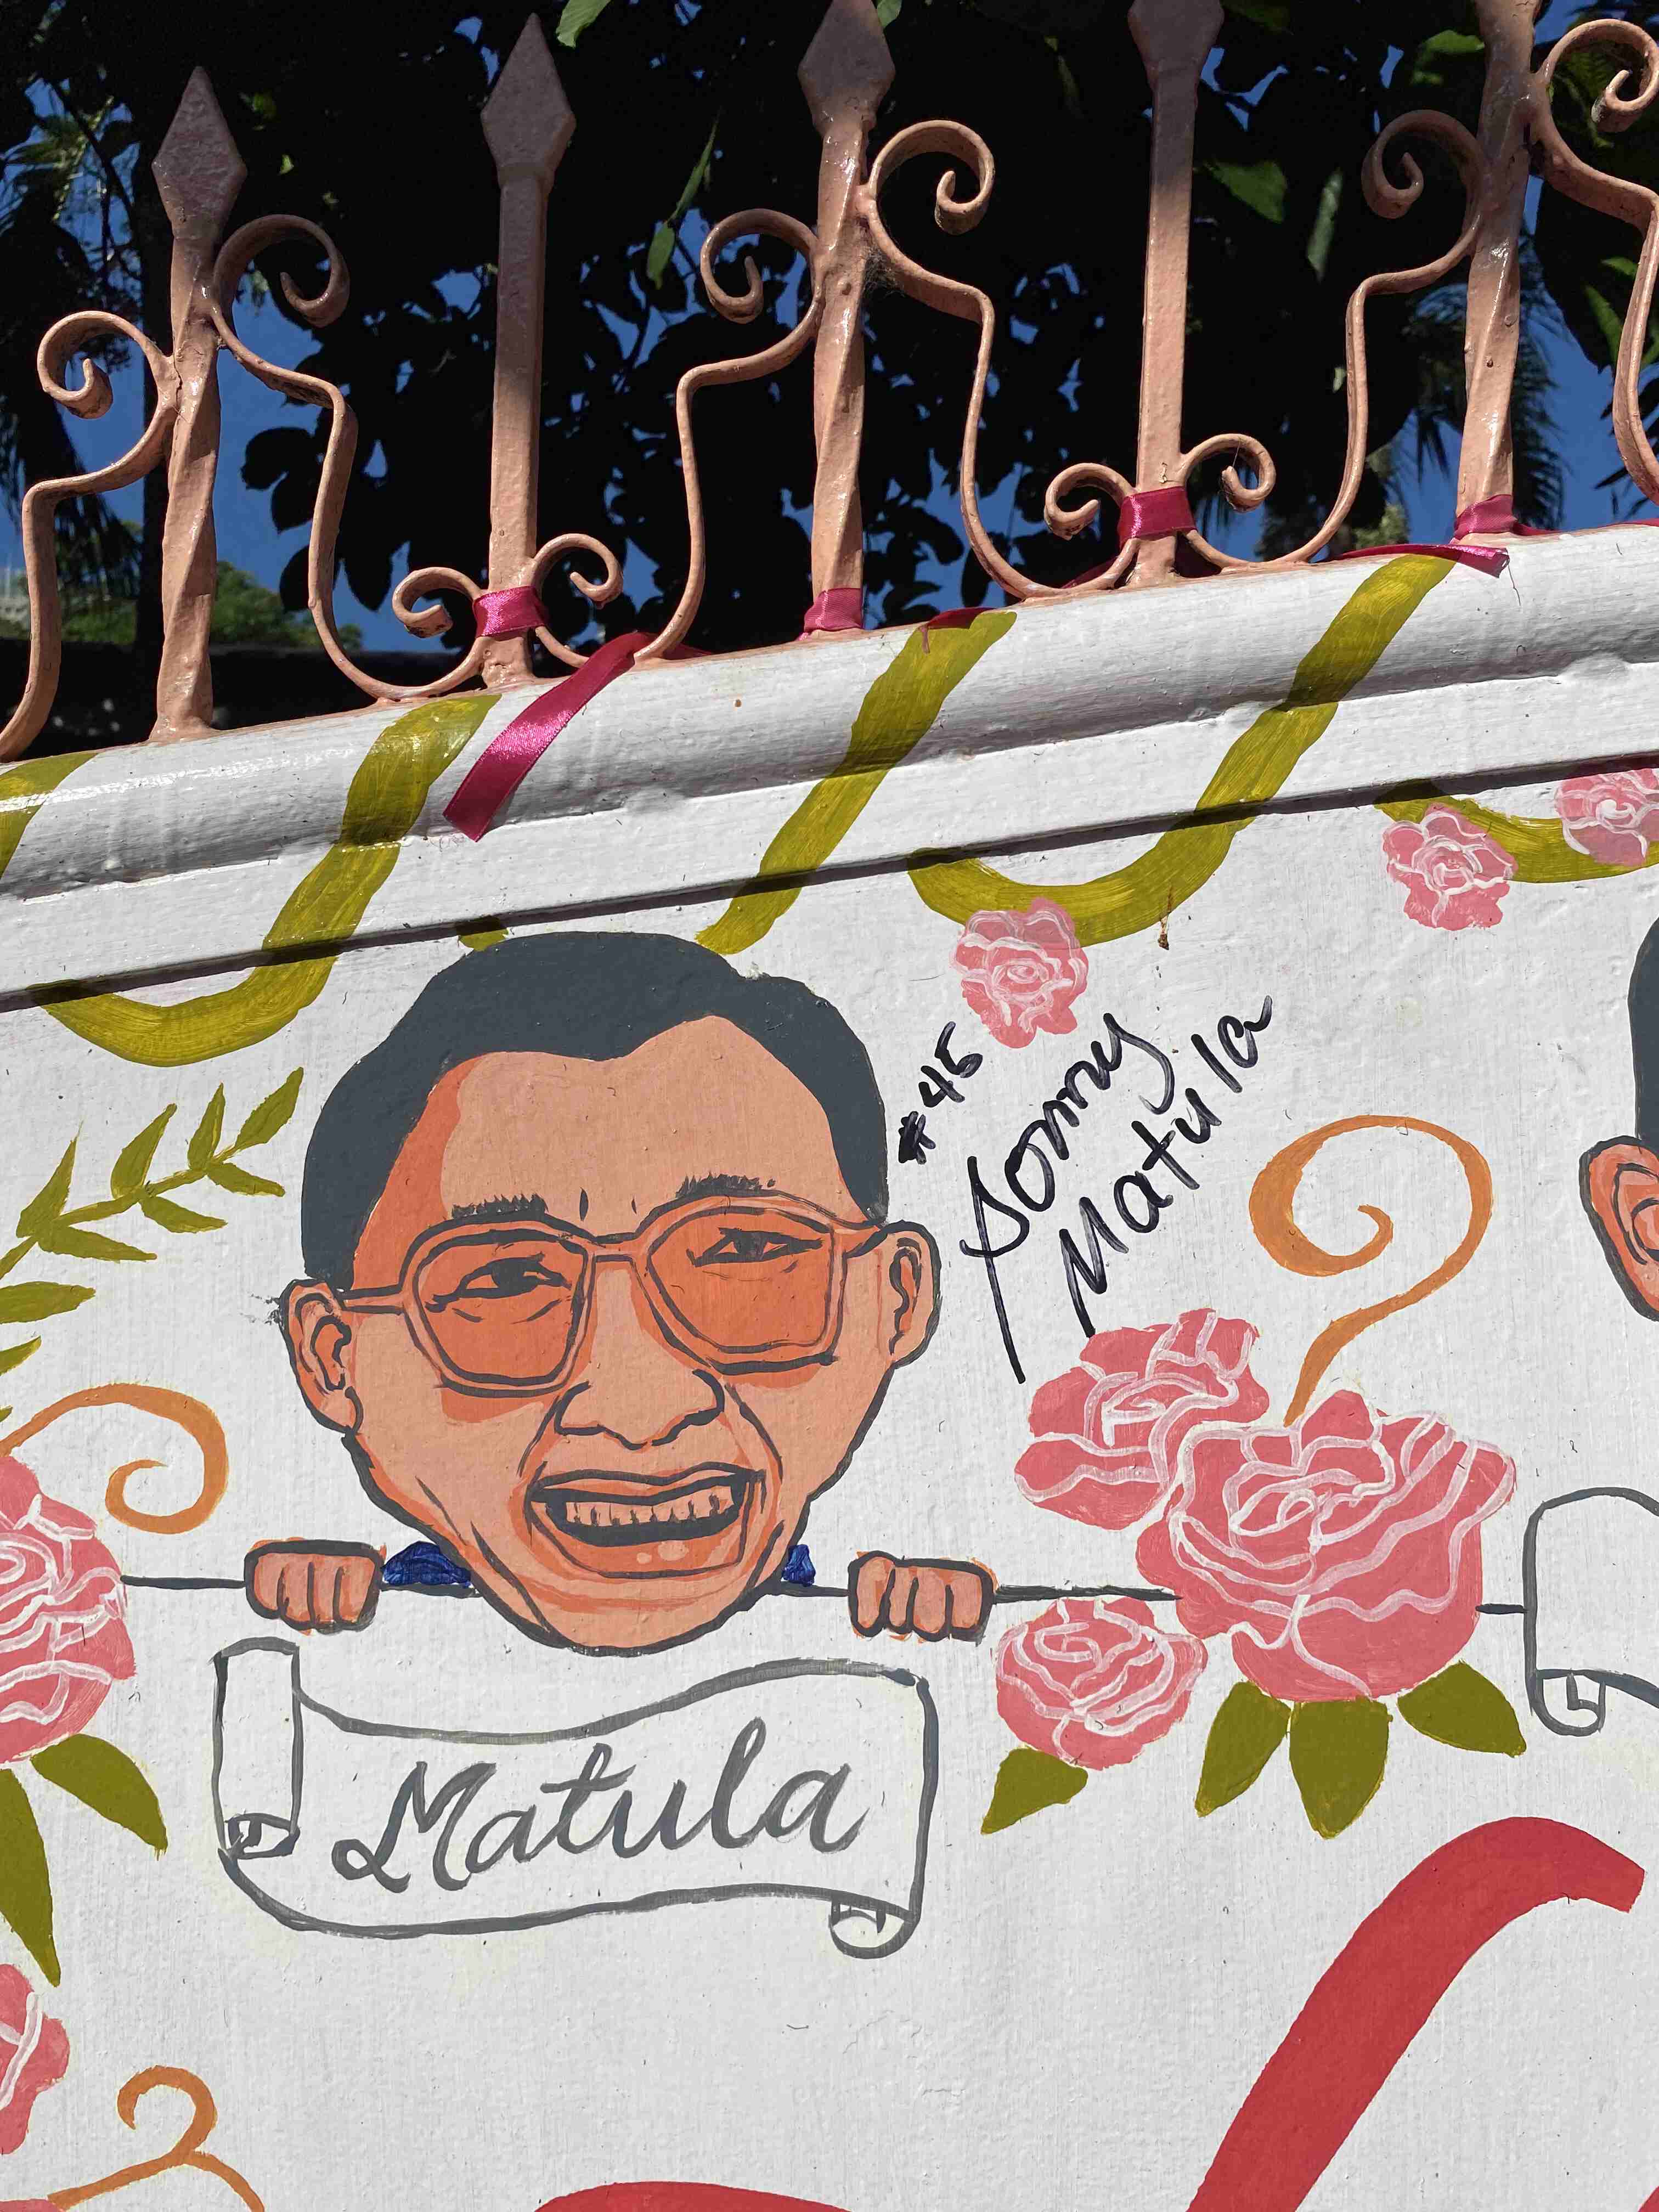 #45
Sonny
Matula
Matula